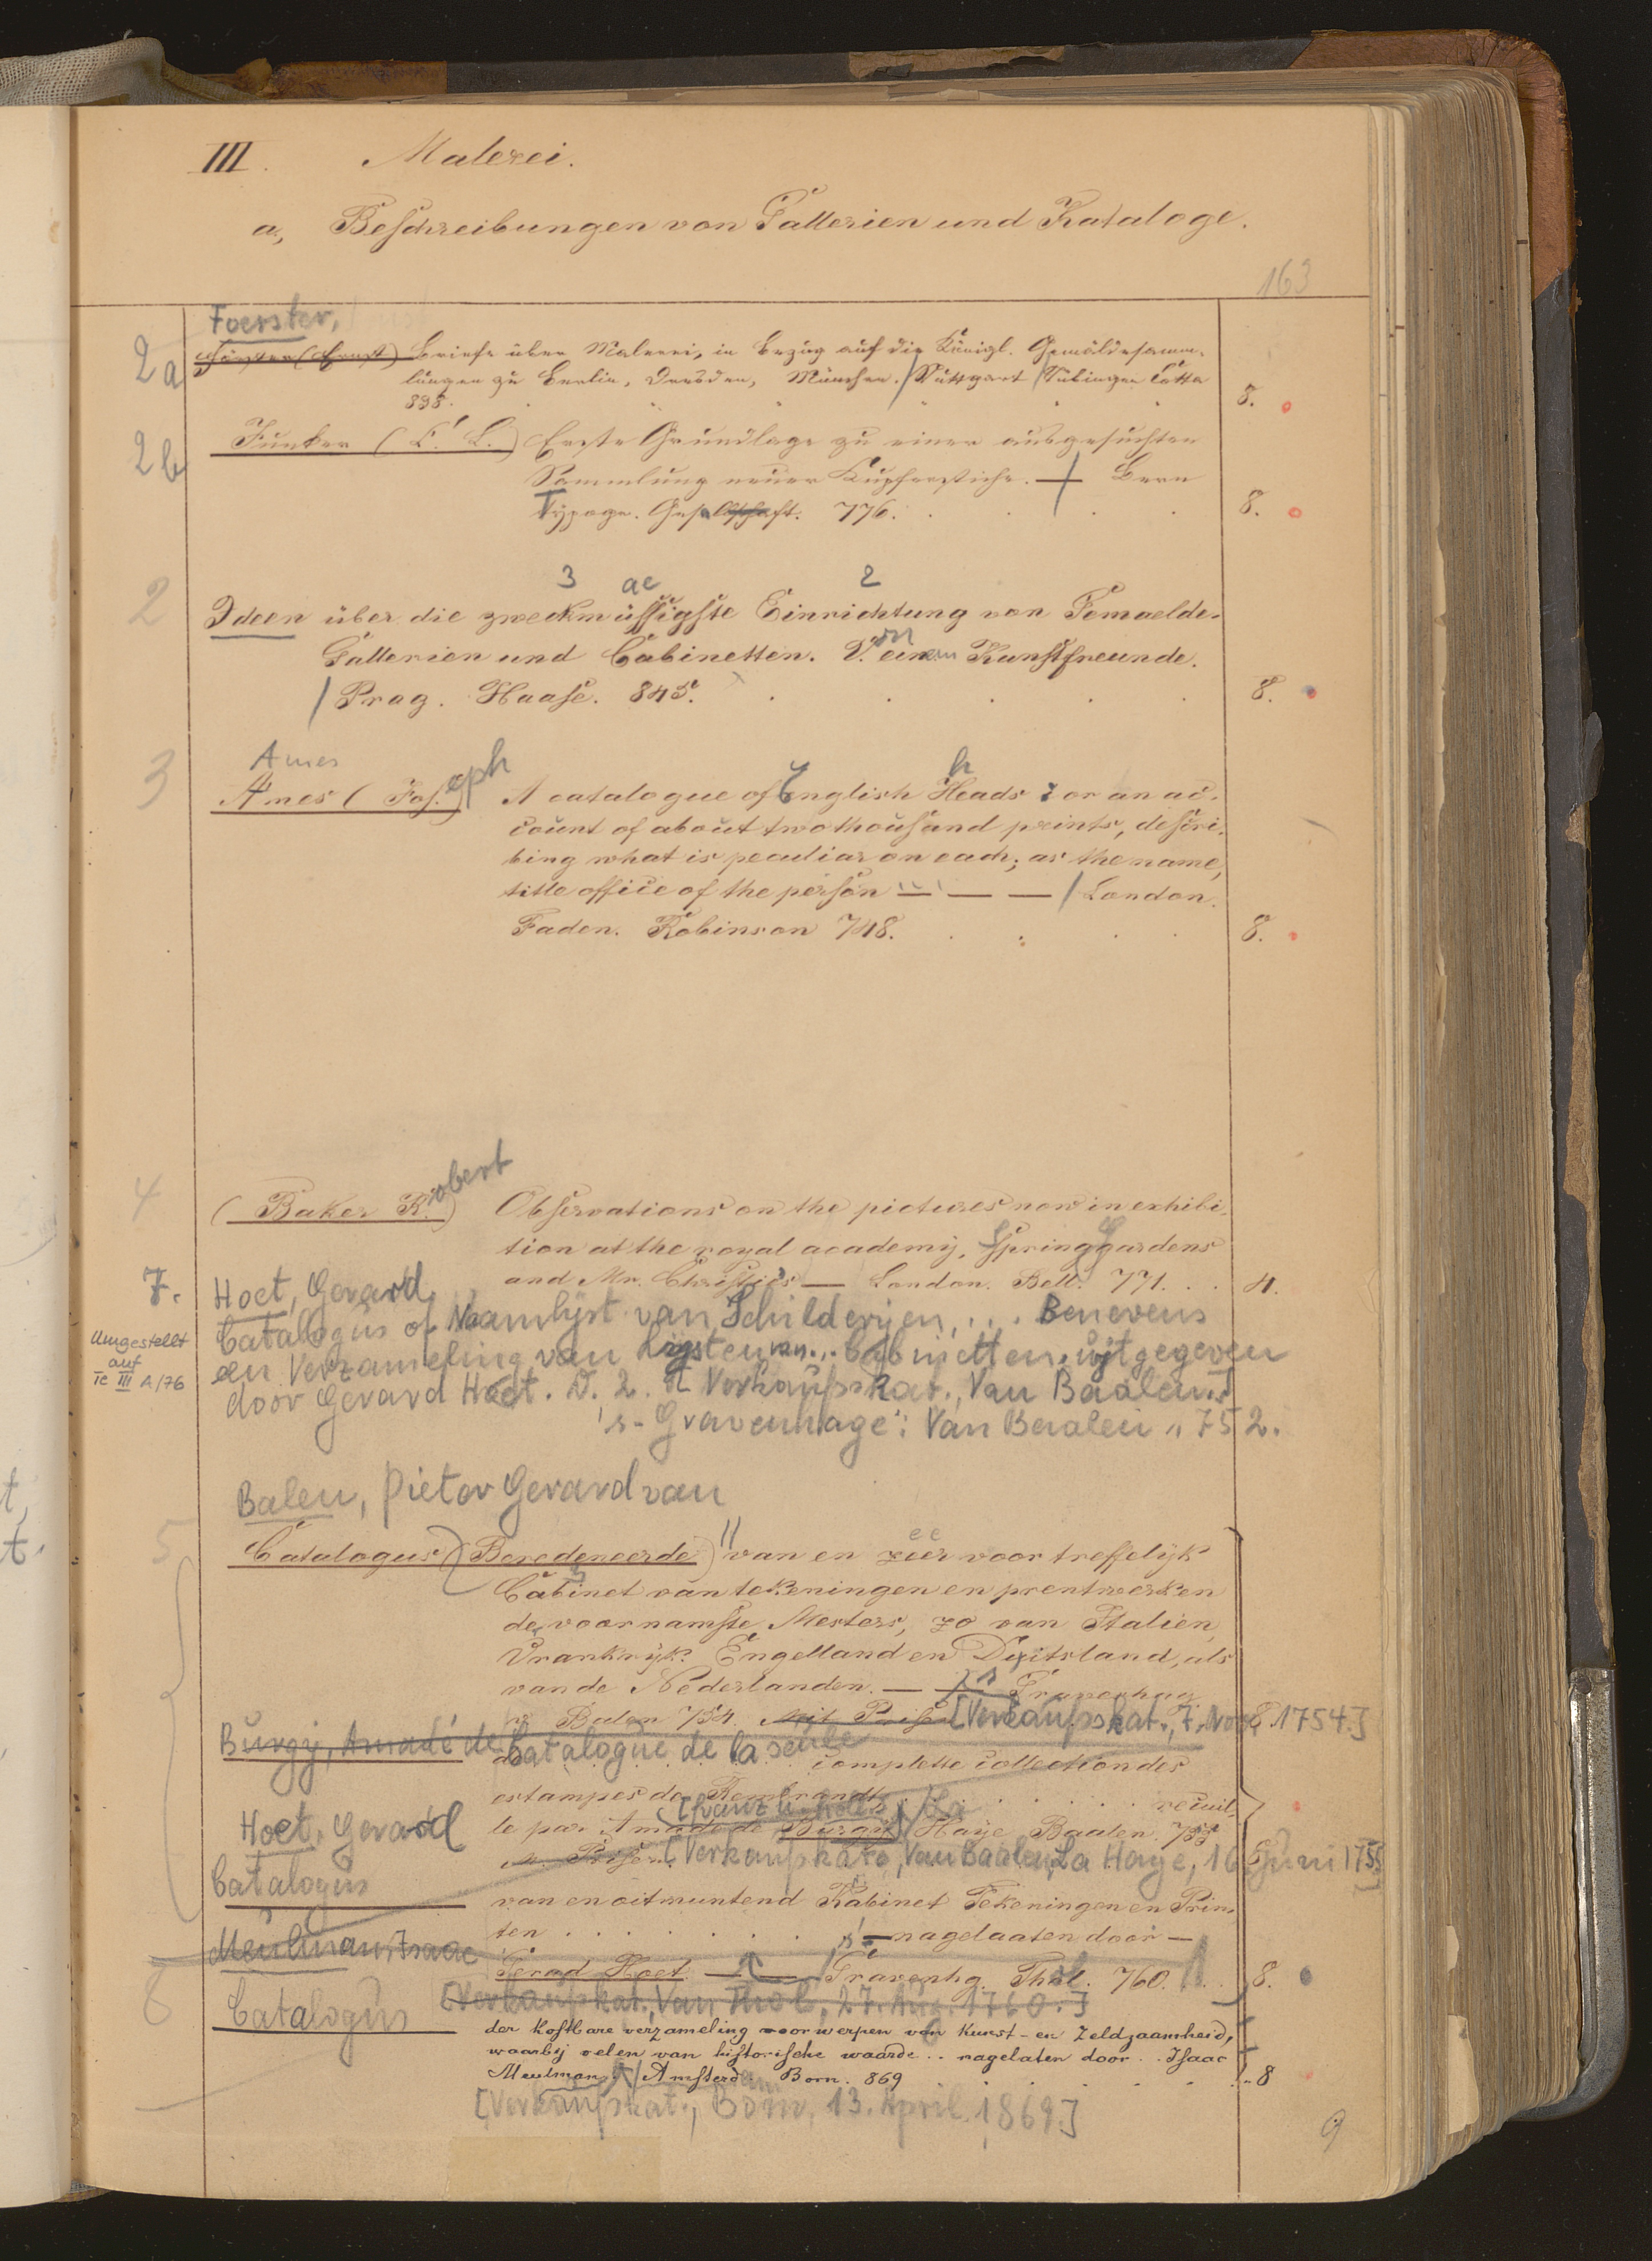 III. Malerei.
a, Beschreibungen von Gallerien und Kataloge.
163
Foerster,
2a Förster (Ernst) Briefe über Malerei, in Bezug auf die Königl. Gemäldesamm-
lungen zu Berlin, Dresden, München. / Stuttgart / Tübingen Cotta
838. 8.
2b Junker (C. L.) Erste Grundlage zu einer ausgesuchten
Sammlung neuer Kupferstiche. — Bern
Typogr. Gesellschaft. 776. 8.
3 ae 2
2 Ideen über die zweckmässigste Einrichtung von Gemaelde-
Gallerien und Cabinetten. V. einem Kunstfreunde.
/ Prag. Haase. 845. 8.
Ames
3 Ames (Jos.eph) A catalogue of English Heads: or an ac-
count of about two thousand prints, descri-
bing what is peculiar on each; as the name,
title office of the person — — — / London.
Faden. Robinson 748. 8.
4 (Baker R.obert) Observations on the pictures now in exhibi-
tion at the royal academy, Spring gardens
and Mr. Christie's — London. Bell. 771. 4.
7. Hoet, Gerard
Catalogus of Naamlyst van Schilderyen, ... Benevens
Umgestellt
auf
Ic III A/76
een Verzameling van Lysten van .. Cabinetten. uytgegeven
door Gerard Hoet. D. 2. Verkaufskat., Van Baalen
's-Gravenhage: Van Baalen 752.
Balen, Pieter Gerard van
5 Catalogus (Beredeneerde) van en zeer voortreffelijk
Cabinet van tekeningen en prentwerken
de voornamste Mesters, zo van Italien,
Vrankrijk. Engelland en Duitsland, als
van de Nederlanden. — 's Gravenhag
v. Balen 754. Mit Preisen [Verkaufskat., 7. Nov. 1754.]
Burgy, Amadé de Catalogue de la seule
do. complette collection des
estampes de Rembrandt recueil-
[franz. u. holl.] La
le par Amade de Burgy. / Haye Baalen. 755
M. Preisen. [Verkaufskat., Van Baalen, La Haye, 16 Juni 1755]
Hoet, Gerard
Catalogus
van en uitmuntend Kabinet Tekeningen en Prin-
ten — nagelaaten door —
Meulman, Isaac
Gerad Hoet. — Gravenhg. Thol. 760. 8.
[Verkaufskat., Van Thol, 27. Aug. 1760.]
6 Catalogus
der kostbare verzameling voorwerpen van Kunst- en Zeldzaamheid,
waarbij velen van historische waarde .. nagelaten door .. Isaac
Meulman. / Amsterdam Born. 869 8
[Verkaufskat., Born, 13. April 1869.]
9